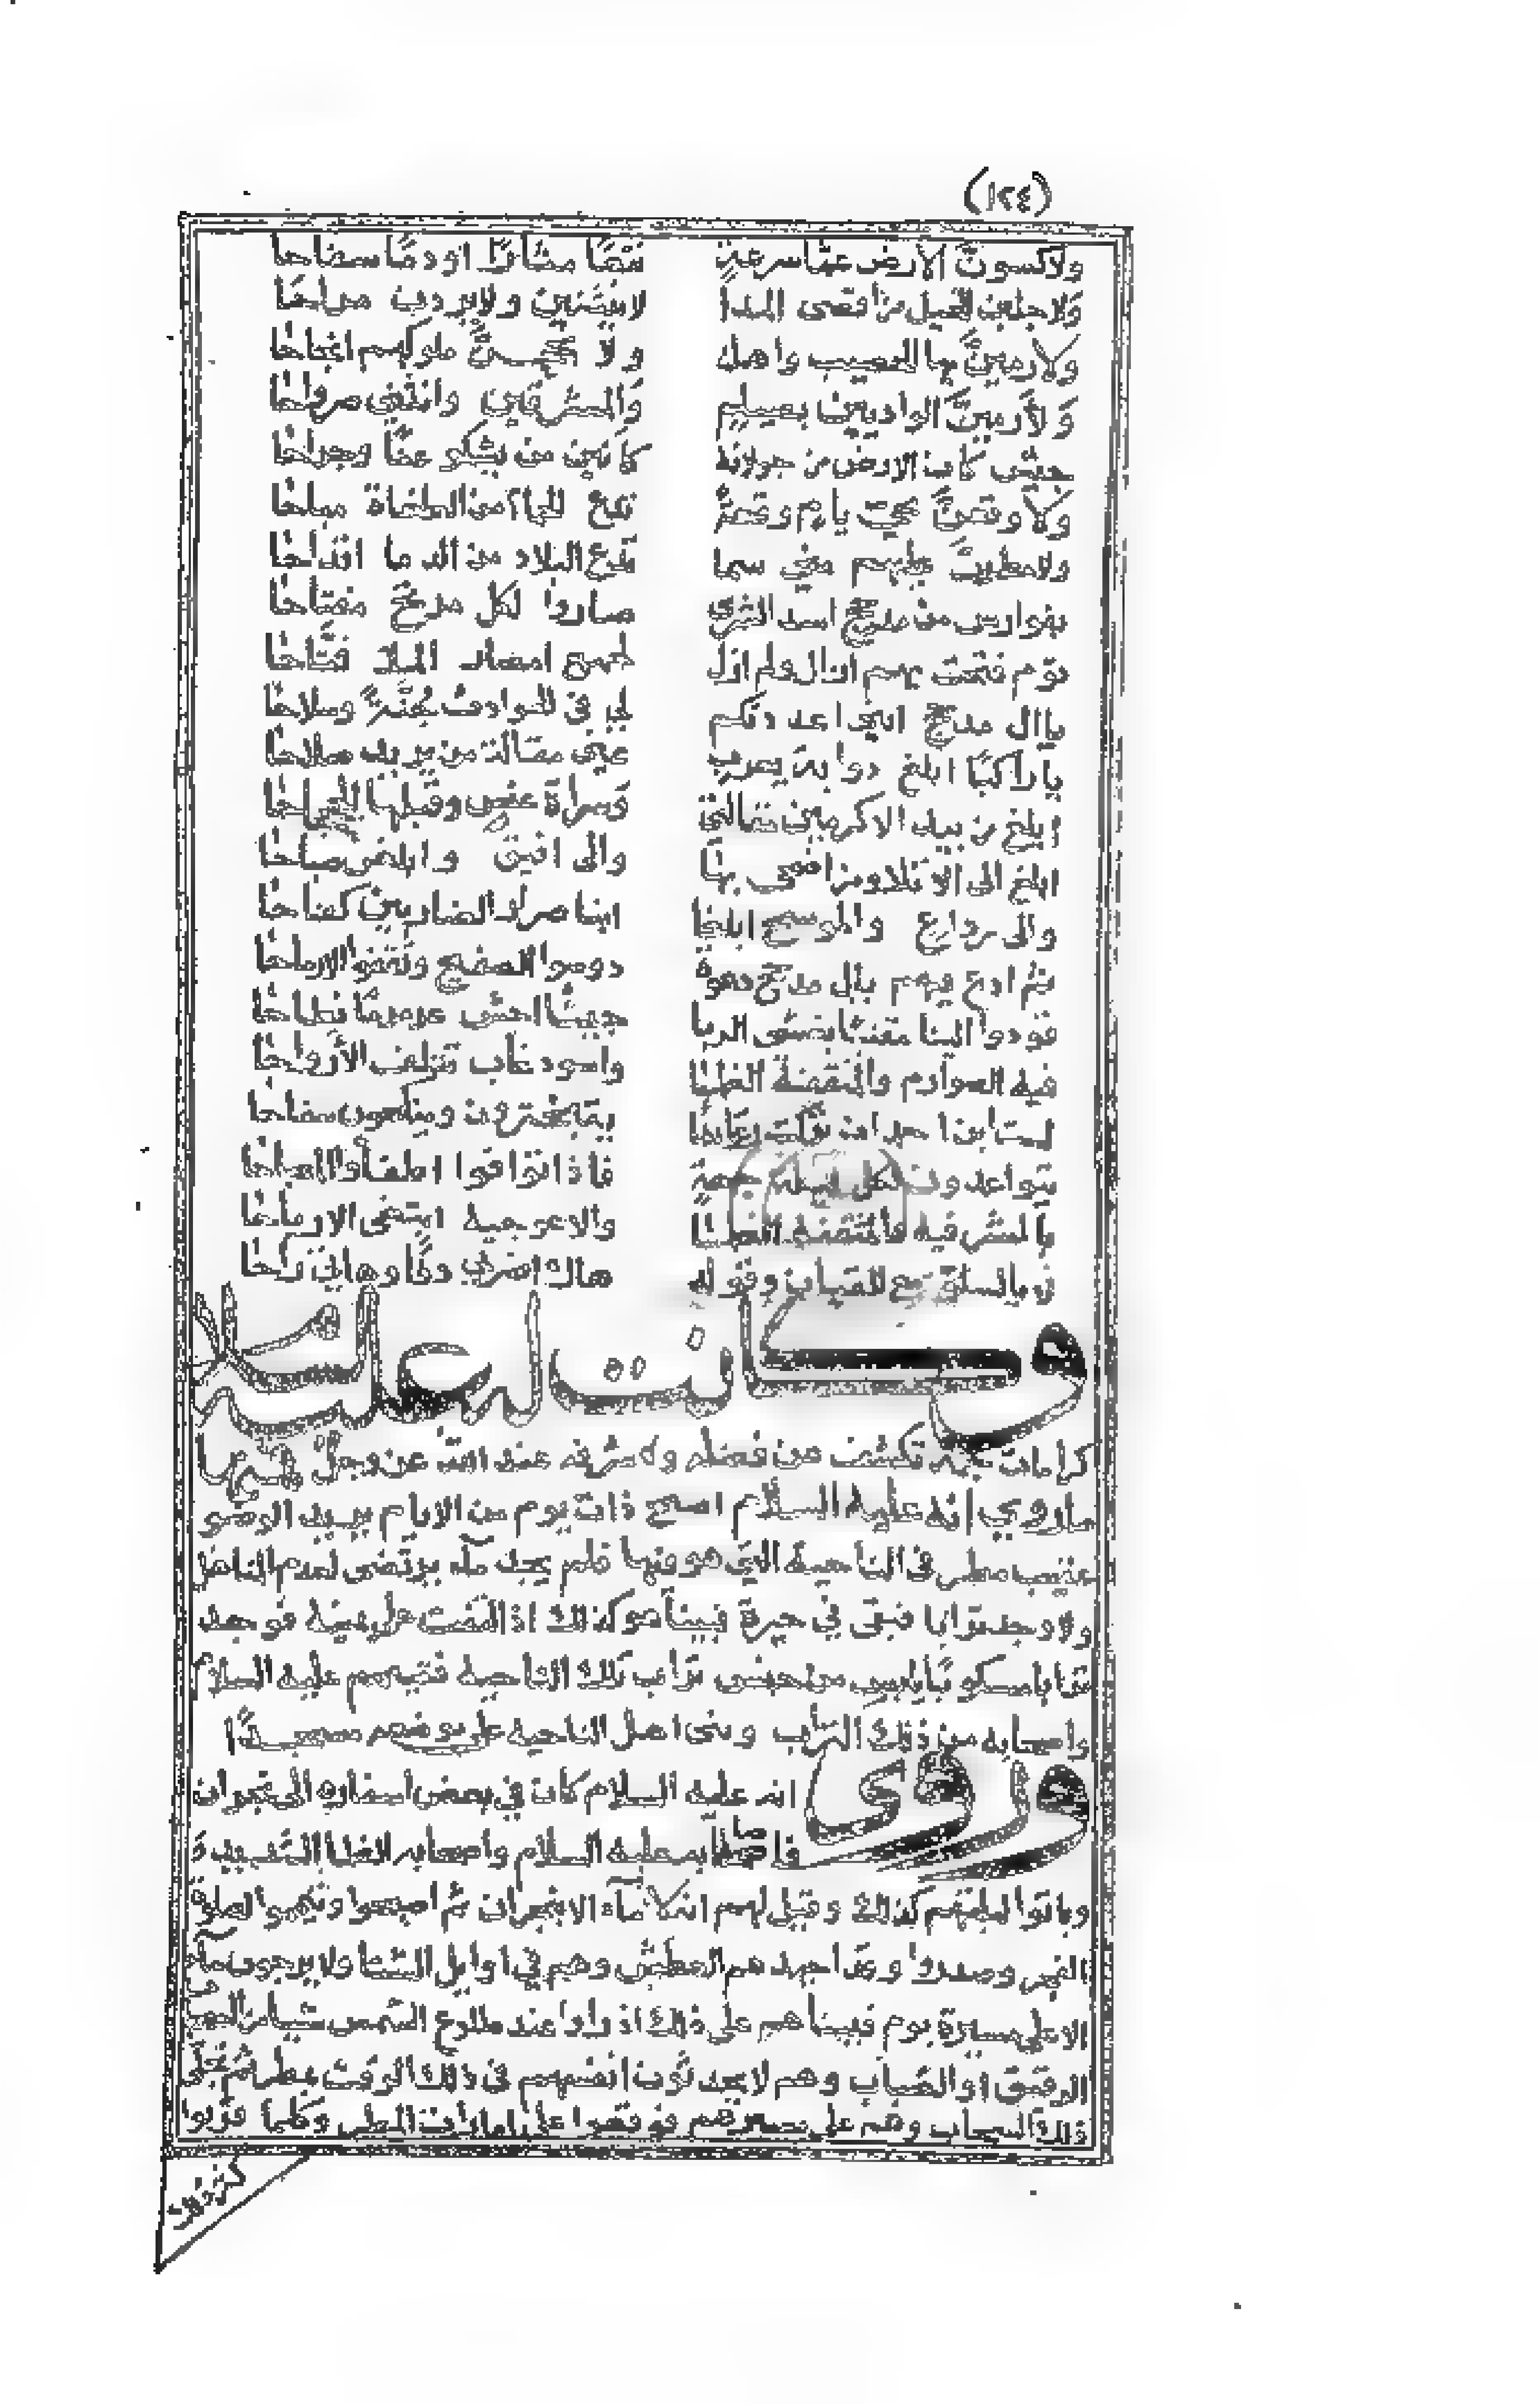 (١٢٤)
ولاكسونّ الأرض عمّا سرعةٍ نقعًا مثارًا او دمًا سفاحا
ولاجلبن الخيل من اقصى المدا لاينثنين ولا يردن مراحا
ولارمينّ بها الحصيب واهله ولا ملوكهم
ولأرمينّ الواديين بصيلم والمشرقين وانثنى صرواحا
جيش كأن الارض من جولانه كأنين من يشكى عمًا وجراحا
ولا وقعنّ يام وقعة تدع من الطغاة مباحا
ولامطرنّ عليهم منى سما تدع البلاد من الدما اقداحا
بفوارس من مذحج اسد الشرى صاروا لكل مرتج مفتاحا
قوم فتحت بهم ازال ولم ازل لجميع امصار الملك فتّاحا
يا آل مذحج اننى اعددتكم لى فى الحوادث جُنّةً وسلاحا
يا راكبًا ابلغ ذوابة يعرب عنى مقالة من يريد صلاحا
ابلغ زبيد الاكرمين مقالتى وسراة عنس وقبلها
ابلغ الى الاتلاد من اقصى بها والى افيق وابلغن صباحا
والى رداع والموسح ابلغا ابنا مراد الضاربين كفاحا
ثم ادع فيهم بال مذحج دعوة دوموا الصفيح وثقفوا الارماحا
قودوا الينا مقنبًا يغشى الربا جيشًا اجش عرمرمًا نطاحا
فيه الصوارم والمثقفة الظبا واسود غاب تتلف الأرواحا
يتواعدون لكل ليلة جمعة فاذا توافوا اطفأوا المصباحا
بالمشرفيه والمثقفة الظبا والاعوجيه ابتغى الارباحا
هاك اضربى دفًا وهاتى راحا
وكانت له عليه السلام
كرامات جمه كشفت من فضله وشرفه عند الله عز وجل فمنها
ماروي انه عليه السلام اصبح ذات يوم من الايام يريد الوضو
عقيب مطر فى الناحية التى هو فيها فلم يجد ماء يرتضى لعدم الناض
ولا وجد ترابا فبقى في حيرة فبينا هو كذلك اذ التفت عن يمينه فوجد
ترابا مسكوبًا ليس من جنس تراب تلك الناحيه فتيمم عليه السلام
واصحابه من ذلك التراب وبنى اهل الناحيه على موضعه مسجدًا
وروى انه عليه السلام كان في بعض اسفاره الى نجران
فاصابه عليه السلام واصحابه الظما الشديد
وباتوا ليلتهم كذلك وقيل لهم انه لا ماء الا بنجران ثم اصبحوا وتيمموا لصلوة
الفجر وصدروا وقد اجهدهم العطش وهم في اوايل الشتا ولا يرجون ماء
الا على مسيرة يوم فبينا هم على ذلك اذ راوا عند طلوع الشمس شيا من الغيم
الرقيق او الضباب وهم لا يحدثون انفسهم فى ذلك الوقت بمطر ثم
ذلك السحاب وهم على مسيرهم فوقعوا على امارات المطر وكلما قربوا